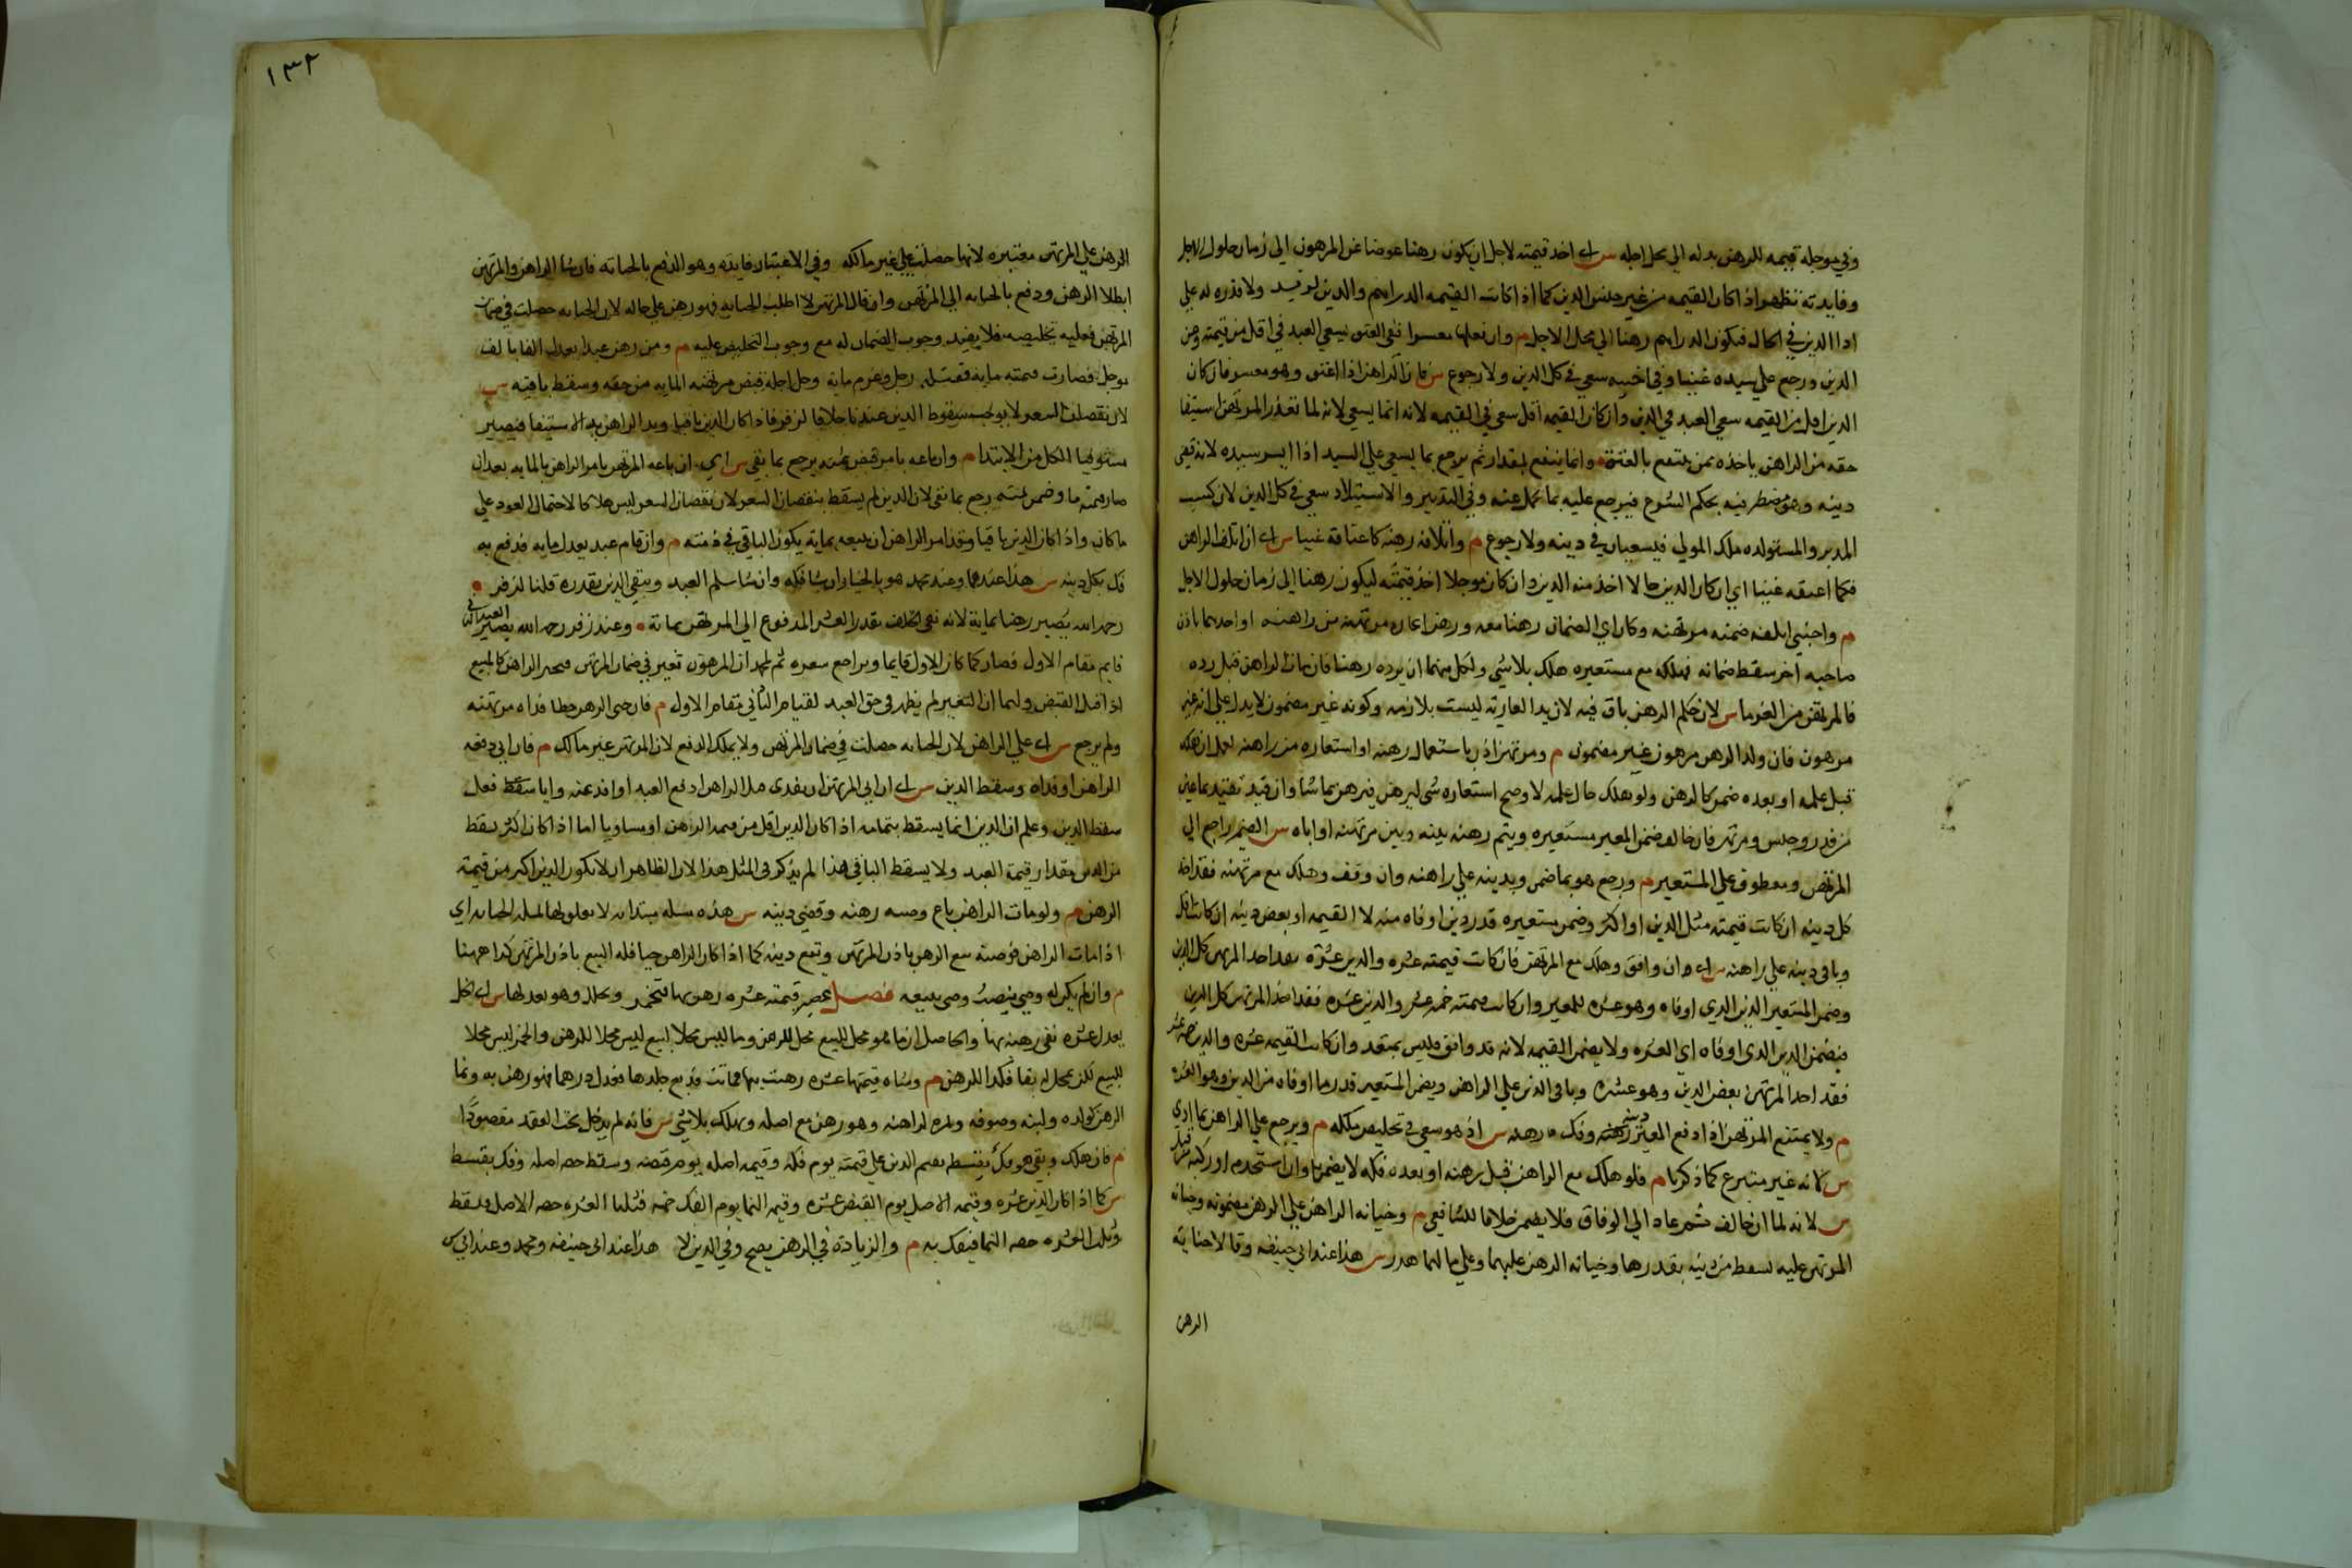 وفي موجله قيمه للرهن بدله الي محل اجله س اي اخذ قيمته لاجل ان يكون رهنا عوضا عن المرهون الي زمان حلول الاجل
وفايدته تظهر اذا كان القيمه من غير جنس الدين كما اذا كانت القيمه الدراهم والدين ولا قدره له علي
ادا الدين في الحال فيكون الدراهم رهنا الي محل الاجل م وان فعلها معسرا ففي العتق يسعي العبد في اقل من قيمته ومن
الدين ورجع علي سيده غنيا وفي اختيه سعي في كل الدين ولا رجوع س فان الراهن اذا اعتق وهو معسر فان كان
الدين اقل من القيمه سعي العبد في الدين وان كان القيمه اقل سعي في القيمه لانه انما يسعي لانه لما تعذر للمرتهن استيفا
حقه من الراهن ياخذه ممن ينتفع بالعتق وانما ينتفع بمقدار ثم يرجع بما يسعي علي السيد اذا ايسر سيده لانه قضي
دينه وهو مضطر فيه بحكم الشرع فيرجع عليه بما تحمل عنه وفي التدبير والاستيلاد سعي في كل الدين لان كسب
المدبر والمستولده ملك المولي فيسعيان في دينه ولا رجوع م واتلافه رهنه كاعتاقه غنيا س اي ان اتلف الراهن
فكما اعتقه غنيا اي ان كان الدين حالا اخذ منه الدين وان كان موجلا اخذ قيمته ليكون رهنا الي زمان حلول الاجل
م واجنبي اتلفه ضمنه مرتهنه وكان اي الضمان رهنا معه ورهن اعاره مرتهنه من راهنه او احدهما باذن
صاحبه اخر سقط ضمانه فهلكه مع مستعيره هلك بلا شي ولكل منهما ان يرده رهنا فان مات الراهن قبل رده
فالمرتهن من الغرما س لان حكم الرهن باق فيه لان يد العارية ليست بلازمه وكونه غير مضمون لا يدل علي انه غير
مرهون فان ولد الرهن مرهون غير مضمون م ومرتهن اذن باستعمال رهنه او استعاره من راهنه لعمل ان هلك
قبل عمله او بعده ضمن كالرهن ولو هلك حال عمله لا وصح استعاره شي ليرهن فيرهن بما شا وان قيد تقيد بما عين
من قدر وجنس ومرتهن فان خالف ضمن المعير مستعيره ويتم رهنه بينه وبين مرتهنه او اياه س الضمير راجع الي
المرتهن ومعطوف علي المستعير م ورجع هو بما ضمن وبدينه علي راهنه وان وقف وهلك مع مرتهنه فقد اخذ
كل دينه ان كانت قيمته مثل الدين او اكثر وضمن مستعيره قدر دين اوفاه منه لا القيمه او بعض دينه ان كانت اقل
وباقي دينه علي راهنه س اي ان وافق وهلك مع المرتهن فان كانت قيمته عشره والدين عشرة فقد اخذ المرتهن كل الدين
وضمن المستعير الدين الذي اوفاه وهو عشره للمعير وان كانت قيمته خمسه عشر والدين عشره فقد اخذ المرتهن كل الدين
فيضمن الدين الذي اوفاه اي العشره ولا يضمن القيمه لانه قد وافق فليس بمتعد وان كانت القيمه عشره والدين خمسه عشر
فقد اخذ المرتهن بعض الدين وهو عشره وباقي الدين علي الراهن ويضمن المستعير قدر ما اوفاه من الدين وهو العشره
م ولا يمتنع المرتهن اذا دفع المعير دينه وفك رهنه س اذ هو سعي في تخليص ملكه م ويرجع علي الراهن بما ادي
س لانه غير متبرع كما ذكرنا م فلو هلك مع الراهن قبل رهنه او بعده فكه لا يضمن وان استخدمه او ركبه قبل
س لانه لما ان خالف ثم عاد الي الوفاق فلا يضمن خلافا للشافعي م وجنايه الراهن علي الرهن مضمونه وجنايه
المرتهن عليه تسقط من دينه بقدرها وجنايه الرهن عليهما وعلي مالهما هدر س هذا عند ابي حنيفه وقالا جناية
الرهن
١٣٢
الرهن علي المرتهن معتبره لانها حصلت علي غير مالكه وفي الاعتبار فايده وهو الدفع بالجنايه فان شا الراهن والمرتهن
ابطلا الرهن ودفع بالجنايه الي المرتهن وان قال المرتهن لا اطلب الجنايه فهو رهن علي حاله لان الجنايه حصلت في ضمان
المرتهن فعليه تخليصه فلا يفيد وجوب الضمان له مع وجوب التخليص عليه م ومن رهن عبدا يعدل الفا بالف
موجل فصارت قيمته مايه فقتله رجل وغرم ماية وحل اجله قبض مرتهنه المايه من حقه وسقط باقيه س
لان نقصان السعر لا يوجب سقوط الدين عندنا خلافا لزفر فاذا كان الدين باقيا ويد الراهن يد الاستيفا فيصير
مستوفيا الكل من الابتدا م وان باعه بامره قبض مايه يرجع بما بقي س اي ان باعه المرتهن بامر الراهن بالمايه بعد ان
صار قيمته وضمن يرجع بما بقي لان الدين لم يسقط بنقصان السعر لان نقصان السعر ليس هلاكا لاحتمال العود علي
ما كان واذا كان الدين باقيا وقد امر الراهن ان يبيعه بماية يكون الباقي في ذمته م وان قتله عبد يعدل مايه فدفع به
فك بكل دينه س هذا عندهما وعند محمد هو بالخيار ان شا فكه وان شا سلم العبد ويبقي الدين بقدره قلنا لزفر
رحمه الله يصير رهنا بماية لانه نفي الخلف بقدر العشر المدفوع الي المرتهن بمائة وعند زفر رحمه الله يصير العبد الثاني
قايم مقام الاول فصار كما كان الاول قايما وتراجع سعره ثم لمحمد ان المرهون تغير في ضمان المرتهن فيخير الراهن كالمبيع
اذا قبل القبض ولهما ان التغير لم يظهر في حق العبد لقيام الثاني مقام الاول م فان جني الرهن خطا فداه مرتهنه
ولم يرجع س اي علي الراهن لان الجنايه حصلت في ضمان المرتهن ولا يملك الدفع لان المرتهن غير مالك م فان ابي دفعه
الراهن او فداه وسقط الدين س اي ان ابي المرتهن ان يفدي قيل للراهن ادفع العبد او افد عنه وايا فعل
سقط الدين وعلم ان الدين انما يسقط بتمامه اذا كان الدين اقل من قيمه الرهن او مساويا اما اذا كان اكثر سقط
من الدين مقدار قيمة العبد ولا يسقط الباقي هذا لم يذكر في المتن هذا لان الظاهر ان لا يكون الدين اكثر من قيمته
الرهن م ولو مات الراهن باع وصيه رهنه وقضي دينه س هذه مساله مبتداه لا تعلق لها بمساله الجنايه اي
اذا مات الراهن فوصيه يبيع الرهن باذن المرتهن ويقضي دينه كما اذا كان الراهن حيا فله البيع باذن المرتهن كذا ههنا
م وان لم يكن له وصي ينصب وصي يبيعه فصل عصير قيمته عشره رهن بها فتخمر وتخلل وهو يعدلها س اي الخل
يعدل عشره بقي رهنه بها والحاصل ان ما هو محل البيع محل للرهن وما ليس محلا للبيع ليس محلا للرهن والخمر ليس محلا
للبيع لكن محل له بقا فكذا للرهن م وشاه قيمتها عشره رهنت بها فماتت فدبغ جلدها فعدل درهما فهو رهن به ونما
الرهن كولده ولبنه وصوفه وثمره لراهنه وهو رهن مع اصله ويهلك بلا شي س فانه لم يدخل تحت العقد مقصودا
م فان هلك وبقي هو فك بقسطه يقسم الدين علي قيمته يوم فكه وقيمه اصله يوم قبضه وسقط حصه اصله وفك بقسطه
س كما اذا كان الدين عشره وقيمه الاصل يوم القبض عشره وقيمه النما يوم الفك خمسه فثلثا العشره حصه الاصل فيسقط
وثلث العشره حصه النما فيفك به م والزيادة في الرهن يصح وفي الدين لا هذا عند ابي حنيفه ومحمد وعند ابي س